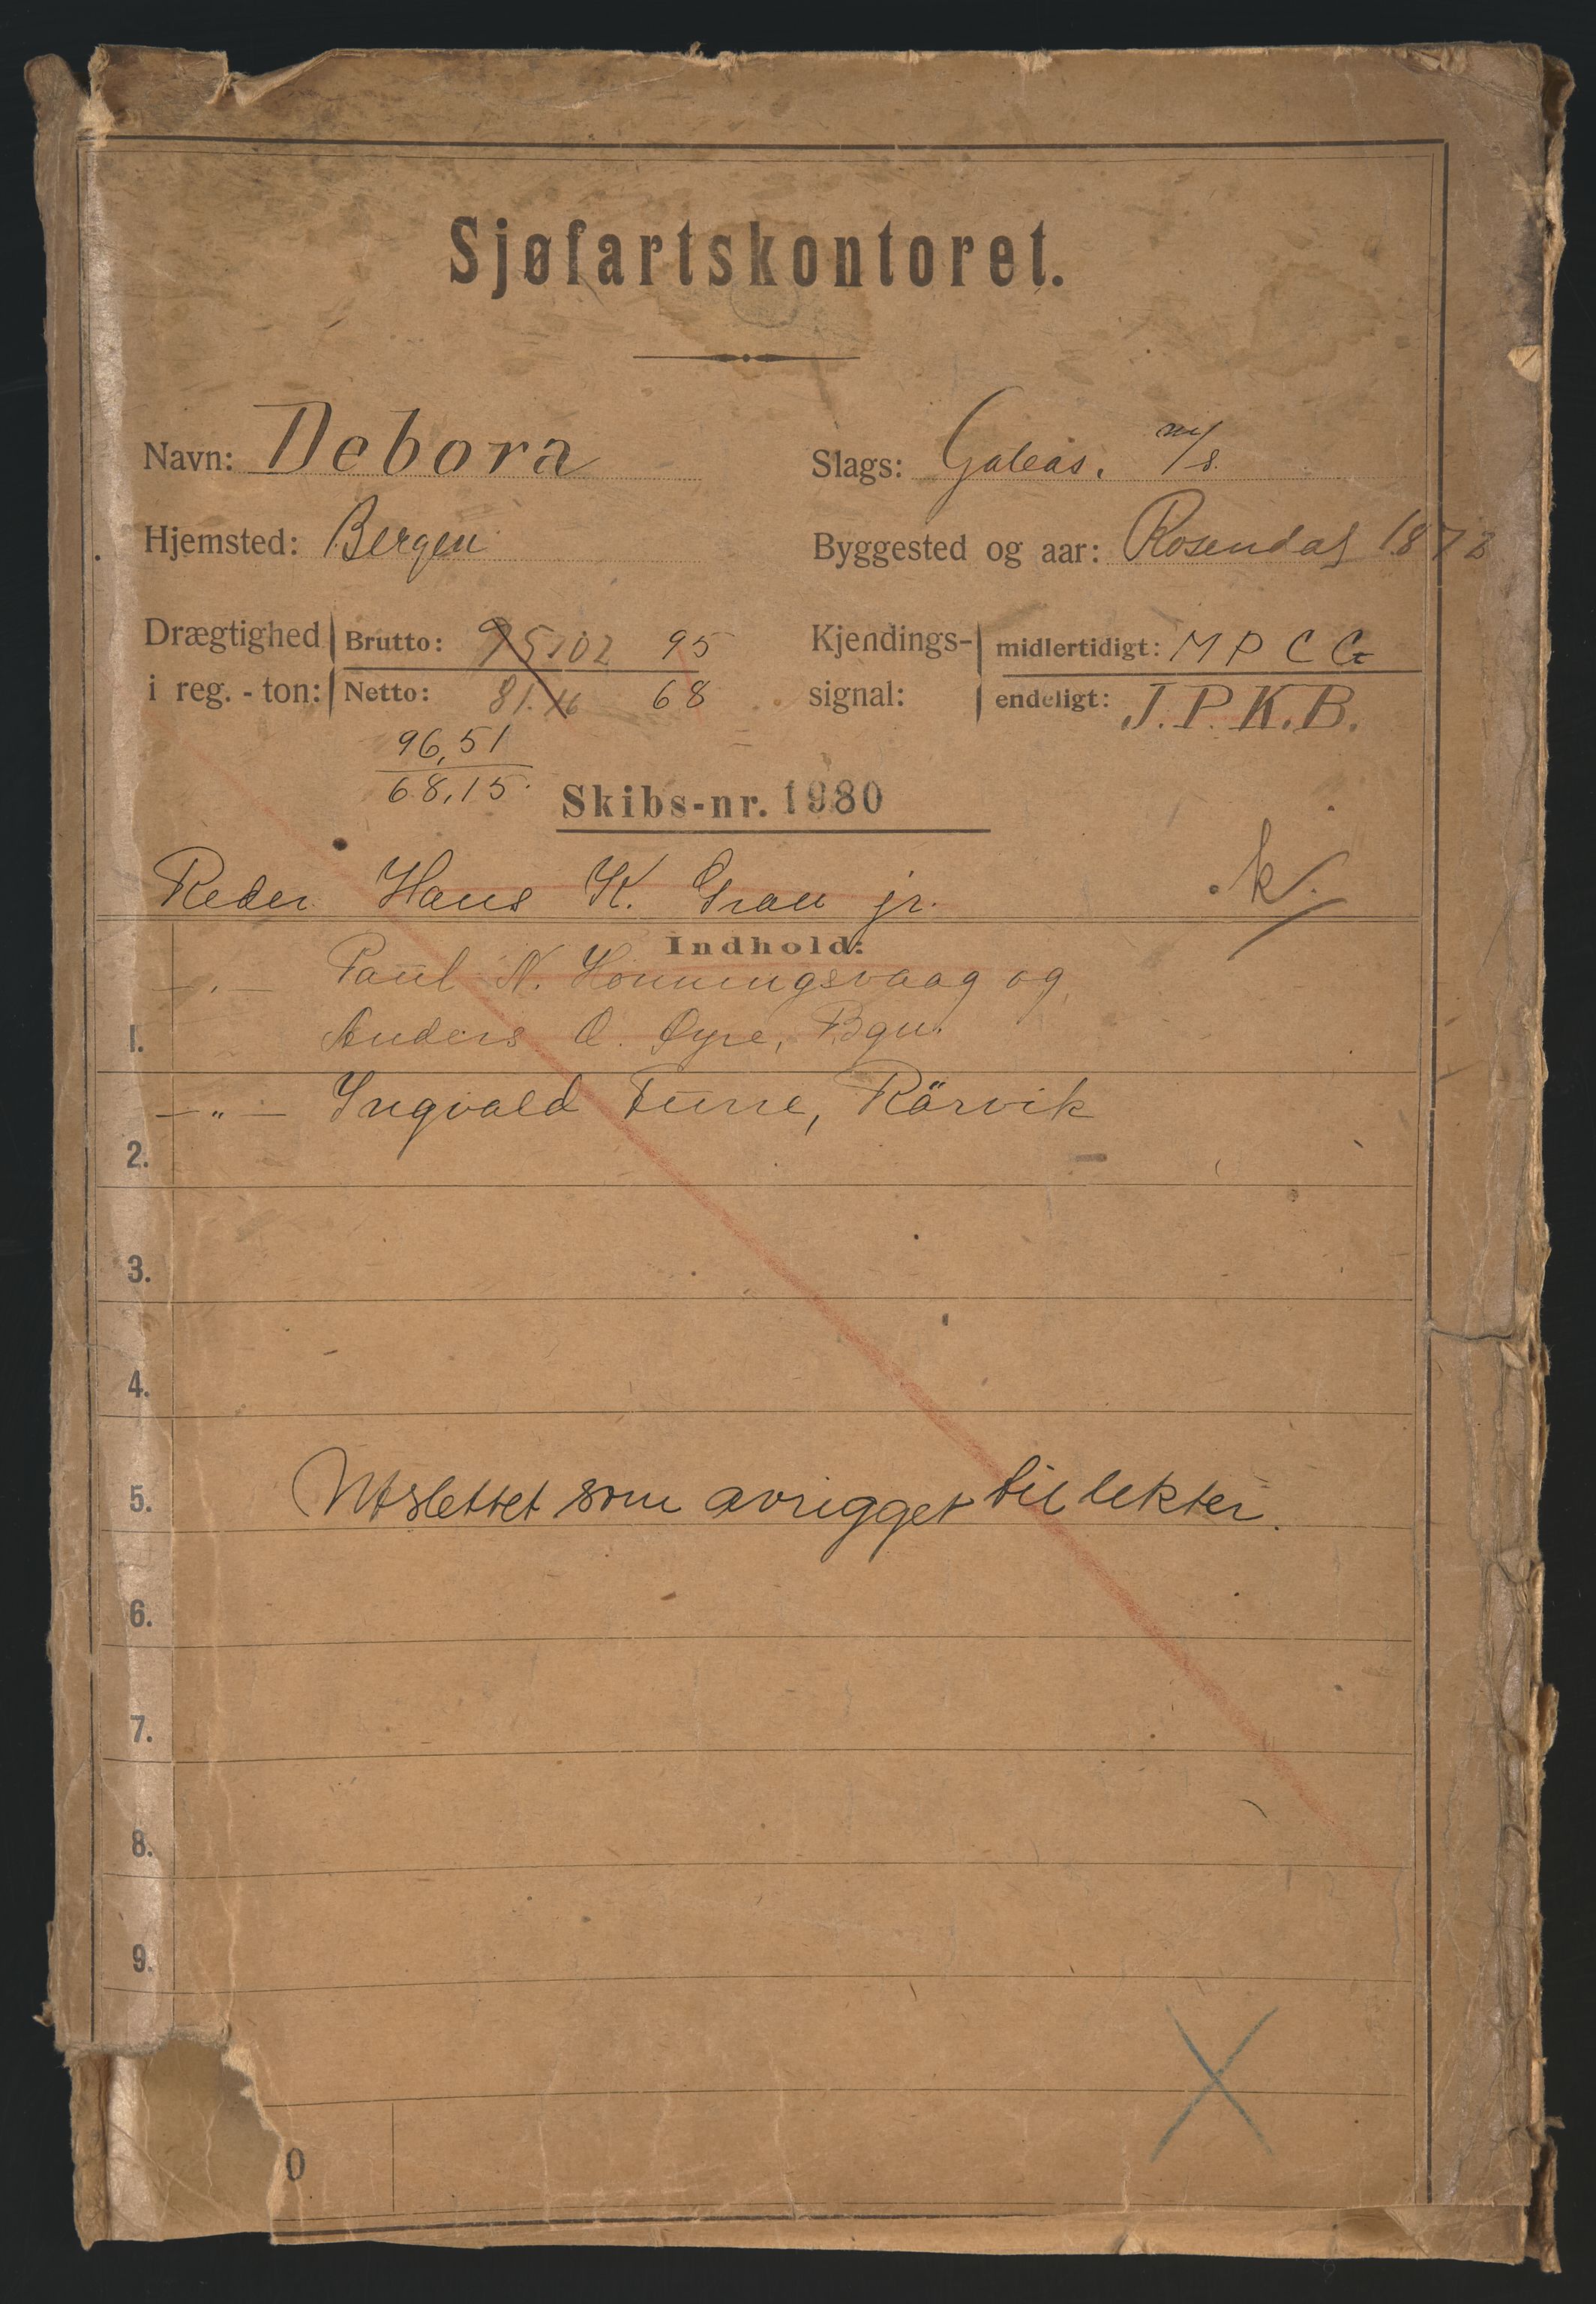 Sjøfartskontoret.
Navn: Debora
Slags: Galeas. m/s.
Hjemsted: Bergen
Byggested og aar: Rosendal 1872
Drægtighed i reg.-ton:
Brutto: 95,02 95
Netto: 81.16 68
96,51
68,15
Kjendings-signal:
midlertidigt: M P C G
endeligt: J.P.K.B.
Skibs-nr. 1980
Reder Hans K. Gran jr. k.
Indhold:
—„— Paul N. Honningsvaag og
1. Anders O. Øyre, Bgn.
—„— Ingvald Furre, Rärvik
2.
3.
4.
5. Utslettet som avrigget til lekter.
6.
7.
8.
9.
0